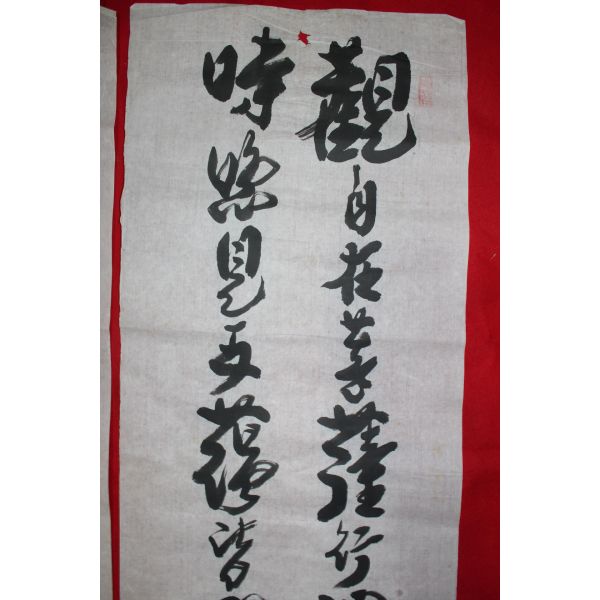 觀自在菩薩行
時照見五蘊皆